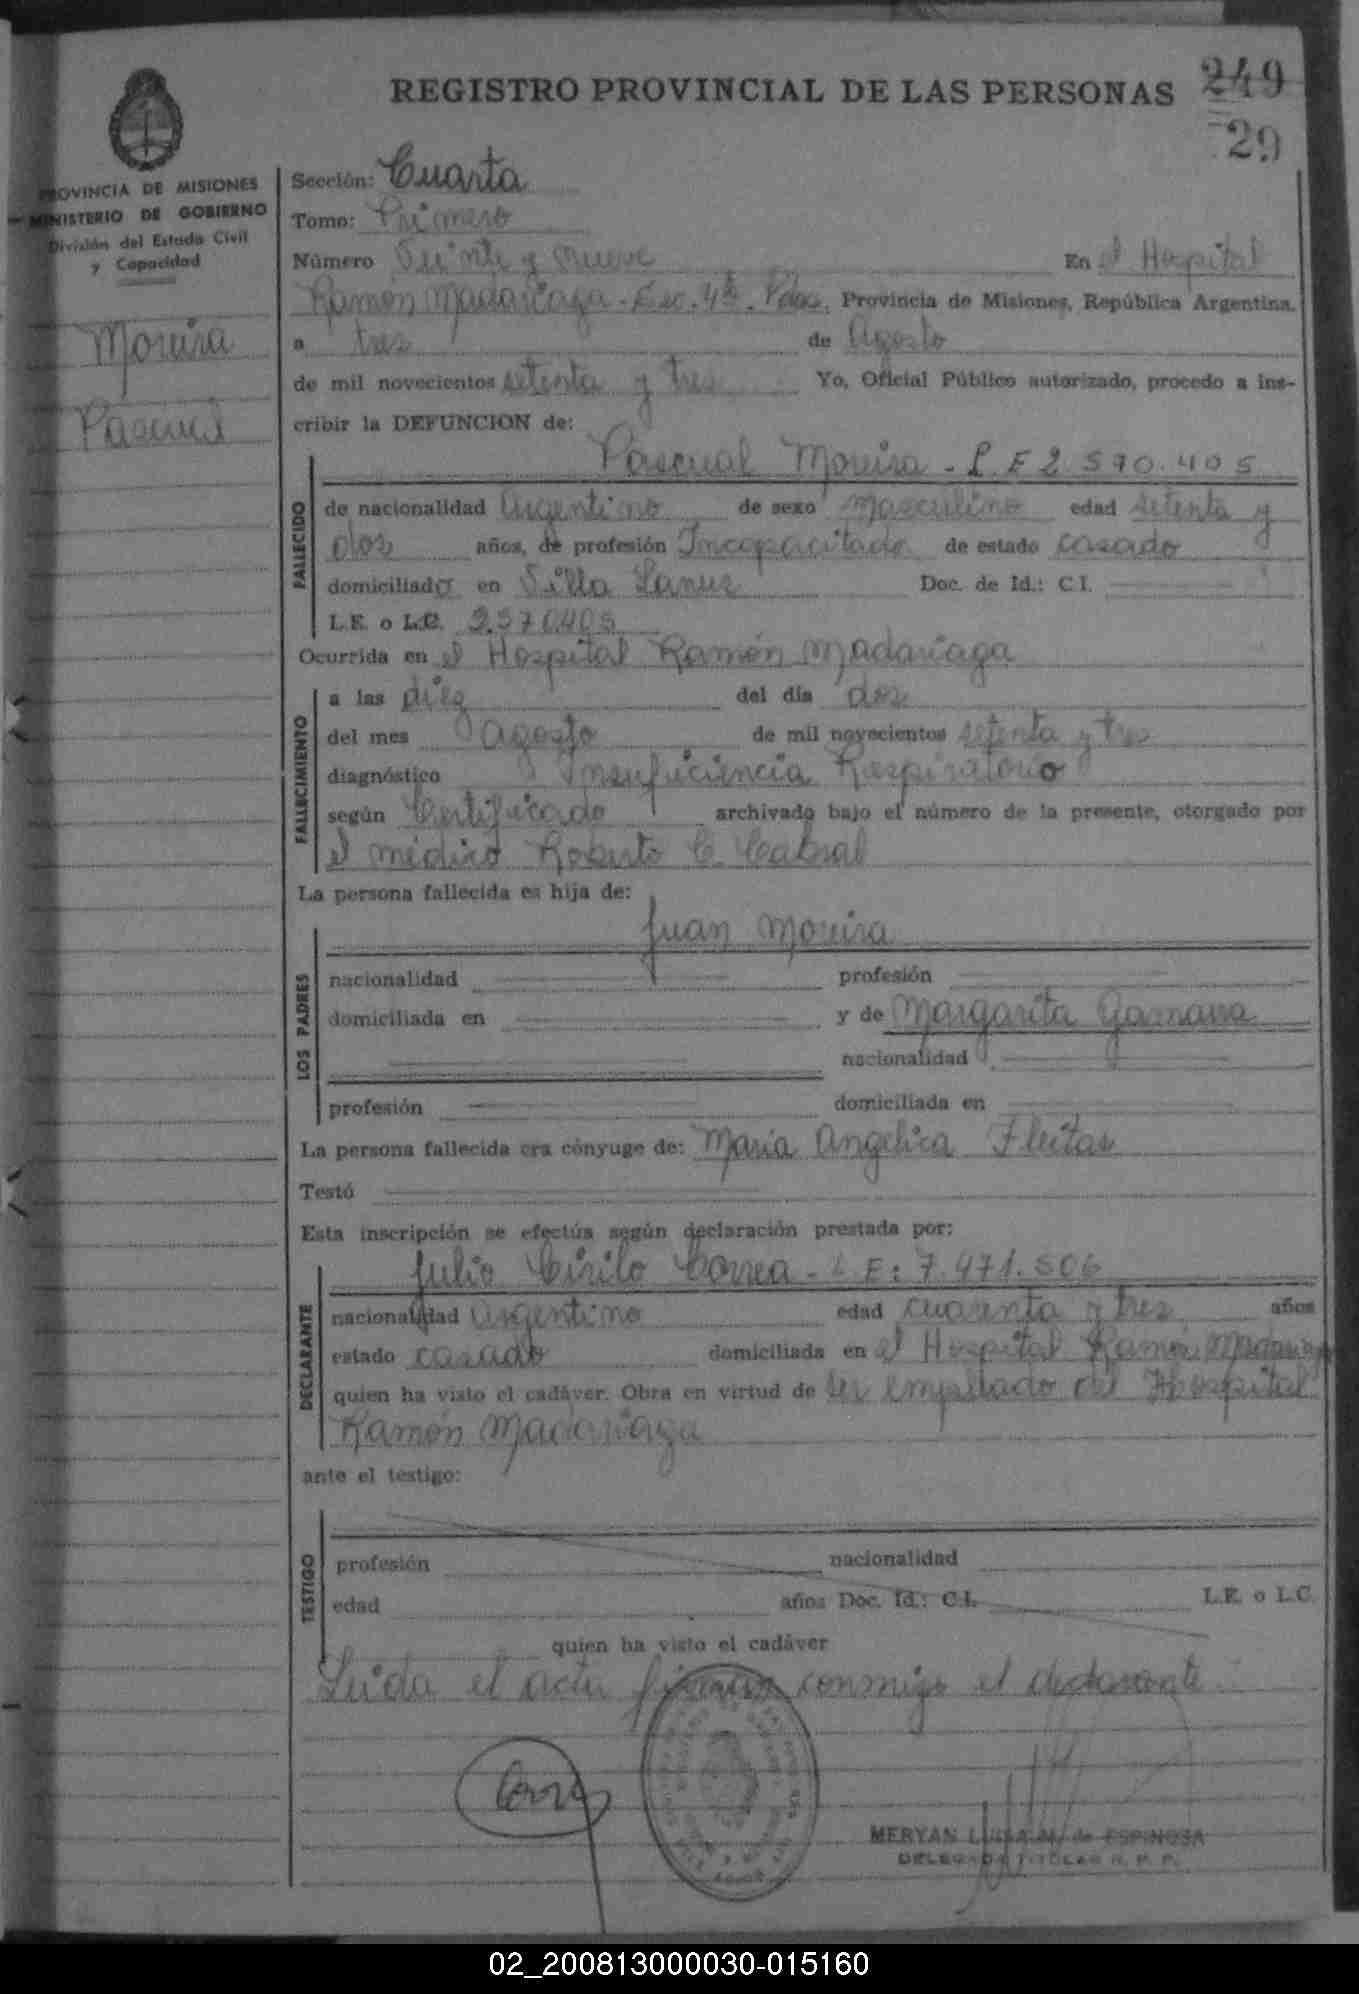 REGISTRO PROVINCIAL DE LAS PERSONAS
249
29
PROVINCIA DE MISIONES
MINISTERIO DE GOBIERNO
División del Estado Civil
y Capacidad
Moreira
Pascual
Sección: Cuarta
Tomo: Primero
Número Veinte y nueve En el Hospital
Ramón Madariaga - Sec. 4ta. Pdas, Provincia de Misiones, República Argentina,
a tres de Agosto
de mil novecientos setenta y tres Yo, Oficial Público autorizado, procedo a ins-
cribir la DEFUNCION de:
Pascual Moreira - L E 2.570.405
FALLECIDO
de nacionalidad Argentino de sexo masculino edad setenta y
dos años, de profesión Incapacitado de estado casado
domiciliado en Villa Lanus Doc. de Id.: C.I.
L.E. o L.C. 2.570.405
Ocurrida en el Hospital Ramón Madariaga
FALLECIMIENTO
a las diez del día dos
del mes Agosto de mil novecientos setenta y tres
diagnóstico Insuficiencia Respiratorio
según Certificado archivado bajo el número de la presente, otorgado por
el médico Roberto C. Cabral
La persona fallecida es hija de:
Juan Moreira
LOS PADRES
nacionalidad profesión
domiciliada en y de Margarita Gamarra
nacionalidad
profesión domiciliada en
La persona fallecida era cónyuge de: María Angelica Fleitas
Testó
Esta inscripción se efectúa según declaración prestada por:
Julio Cirilo Correa - L E: 7.471.506
DECLARANTE
nacionalidad Argentino edad cuarenta y tres años
estado casado domiciliada en el Hospital Ramón Madariaga
quien ha visto el cadáver. Obra en virtud de ser empleado del Hospital
Ramón Madariaga
ante el testigo:
TESTIGO
profesión nacionalidad
edad años Doc. Id.: C.I. L.E. o L.C.
quien ha visto el cadáver
Leida el acta firman conmigo el declarante
MERYAN LUISA M. de ESPINOSA
DELEGADA TITULAR R. P. P.
02_200813000030-015160